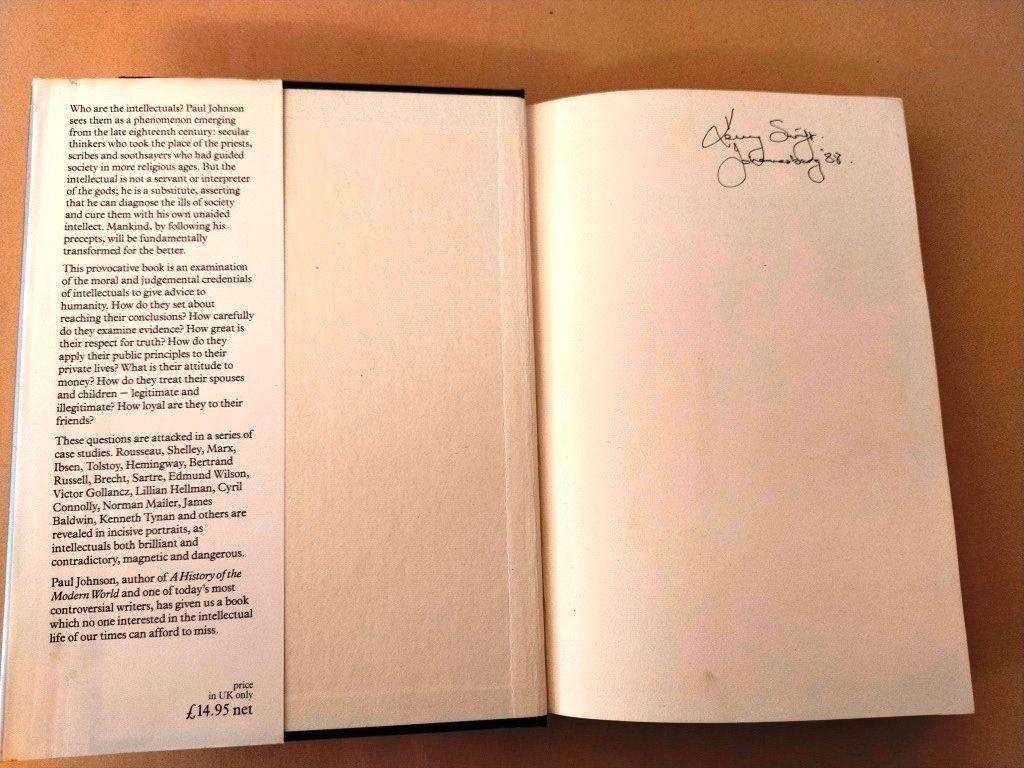 Who are the intellectuals? Paul Johnson
sees them as a phenomenon emerging
from the late eighteenth century: secular
thinkers who took the place of the priests,
scribes and soothsayers who had guided
society in more religious ages. But the
intellectual is not a servant or interpreter
of the gods; he is a substitute, asserting
that he can diagnose the ills of society
and cure them with his own unaided
intellect. Mankind, by following his
precepts, will be fundamentally
transformed for the better.
This provocative book is an examination
of the moral and judgemental credentials
of intellectuals to give advice to
humanity. How do they set about
reaching their conclusions? How carefully
do they examine evidence? How great is
their respect for truth? How do they
apply their public principles to their
private lives? What is their attitude to
money? How do they treat their spouses
and children — legitimate and
illegitimate? How loyal are they to their
friends?
These questions are attacked in a series of
case studies. Rousseau, Shelley, Marx,
Ibsen, Tolstoy, Hemingway, Bertrand
Russell, Brecht, Sartre, Edmund Wilson,
Victor Gollancz, Lillian Hellman, Cyril
Connolly, Norman Mailer, James
Baldwin, Kenneth Tynan and others are
revealed in incisive portraits, as
intellectuals both brilliant and
contradictory, magnetic and dangerous.
Paul Johnson, author of A History of the
Modern World and one of today's most
controversial writers, has given us a book
which no one interested in the intellectual
life of our times can afford to miss.
price
in UK only
£14.95 net
Johannesburg